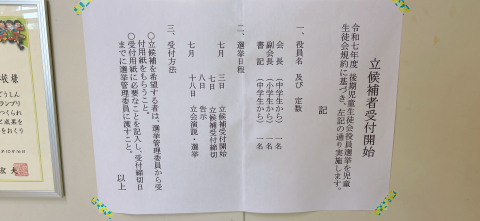 立候補者受付開始
令和七年度 後期児童生徒会役員選挙を児童
生徒会規約に基づき、左記の通り実施します。
記
一、役員名 及び 定数
会長 (中学生から) 一名
副会長 (小学生から) 一名
書記 (中学生から) 一名
二、選挙日程
七月 三日 立候補受付開始
七日 立候補受付締切
八日 告示
七月 十八日 立会演説・選挙
三、受付方法
〇立候補を希望する者は、選挙管理委員から受
付用紙をもらうこと。
〇受付用紙に必要なことを記入し、受付締切日
までに選挙管理委員に渡すこと。
以上